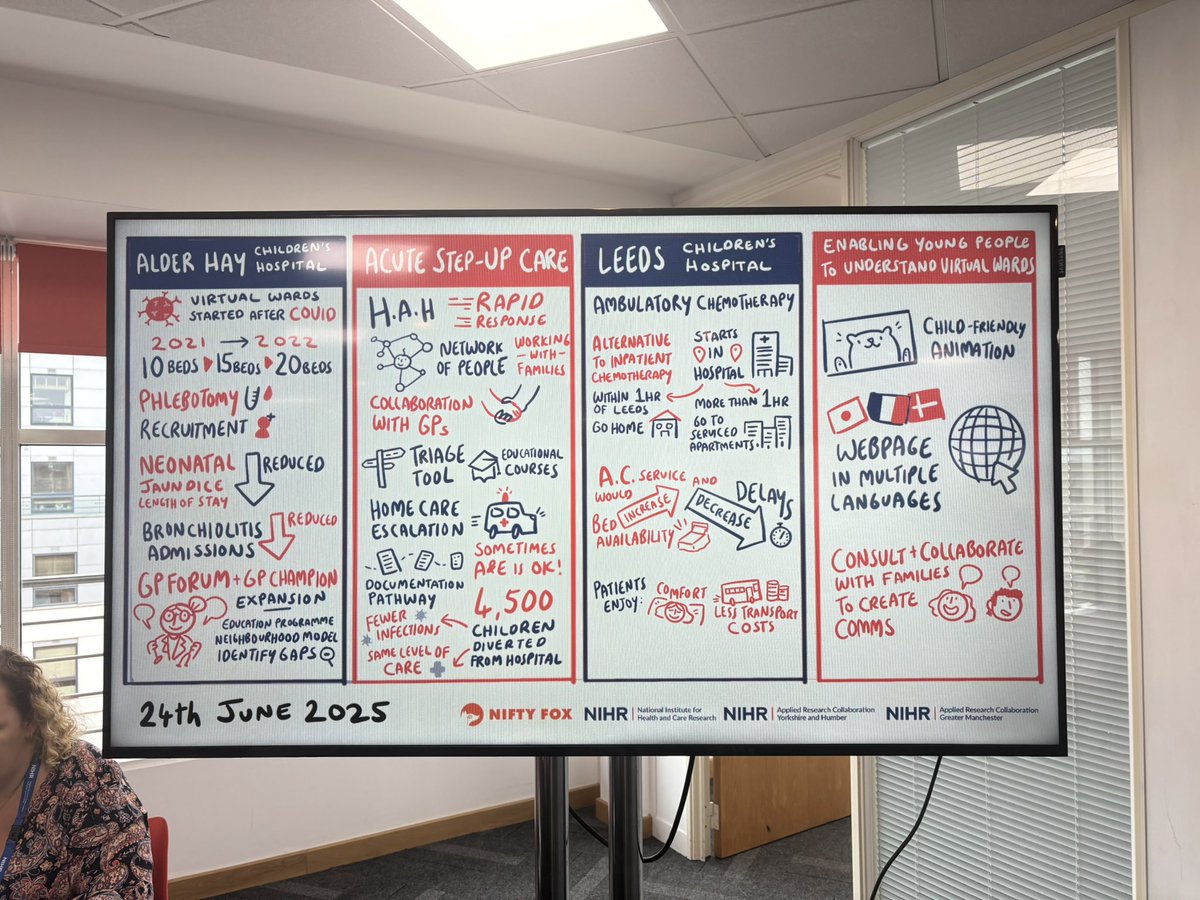 ALDER HAY CHILDREN'S HOSPITAL
VIRTUAL WARDS
STARTED AFTER COVID
2021 → 2022
10 BEDS 15 BEDS 20 BEDS
PHLEBOTOMY
RECRUITMENT
NEONATAL
JAUNDICE
LENGTH OF STAY
REDUCED
BRONCHIOLITIS
ADMISSIONS
REDUCED
GP FORUM + GP CHAMPION
EXPANSION
EDUCATION PROGRAMME
NEIGHBOURHOOD MODEL
IDENTIFY GAPS
ACUTE STEP-UP CARE
H.A.H
RAPID
RESPONSE
NETWORK
OF PEOPLE
WORKING
-WITH-
FAMILIES
COLLABORATION
WITH GPs
TRIAGE
TOOL
EDUCATIONAL
COURSES
HOME CARE
ESCALATION
DOCUMENTATION
PATHWAY
SOMETIMES
ARE IS OK!
4,500
CHILDREN
DIVERTED
FROM HOSPITAL
FEWER
INFECTIONS
SAME LEVEL OF
CARE
LEEDS CHILDREN'S HOSPITAL
AMBULATORY CHEMOTHERAPY
ALTERNATIVE
TO INPATIENT
CHEMOTHERAPY
STARTS
IN
HOSPITAL
WITHIN 1HR
OF LEEDS
GO HOME
MORE THAN 1HR
GO TO
SERVICED
APARTMENTS
A.C. SERVICE
WOULD
INCREASE
BED
AVAILABILITY
AND
DECREASE
DELAYS
PATIENTS
ENJOY:
COMFORT
LESS TRANSPORT
COSTS
ENABLING YOUNG PEOPLE
TO UNDERSTAND VIRTUAL WARDS
CHILD-FRIENDLY
ANIMATION
WEBPAGE
IN MULTIPLE
LANGUAGES
CONSULT + COLLABORATE
WITH FAMILIES
TO CREATE
COMMS
24th JUNE 2025
NIFTY FOX
NIHR | National Institute for
Health and Care Research
NIHR | Applied Research Collaboration
Yorkshire and Humber
NIHR | Applied Research Collaboration
Greater Manchester
SAMSUNG
NIHR